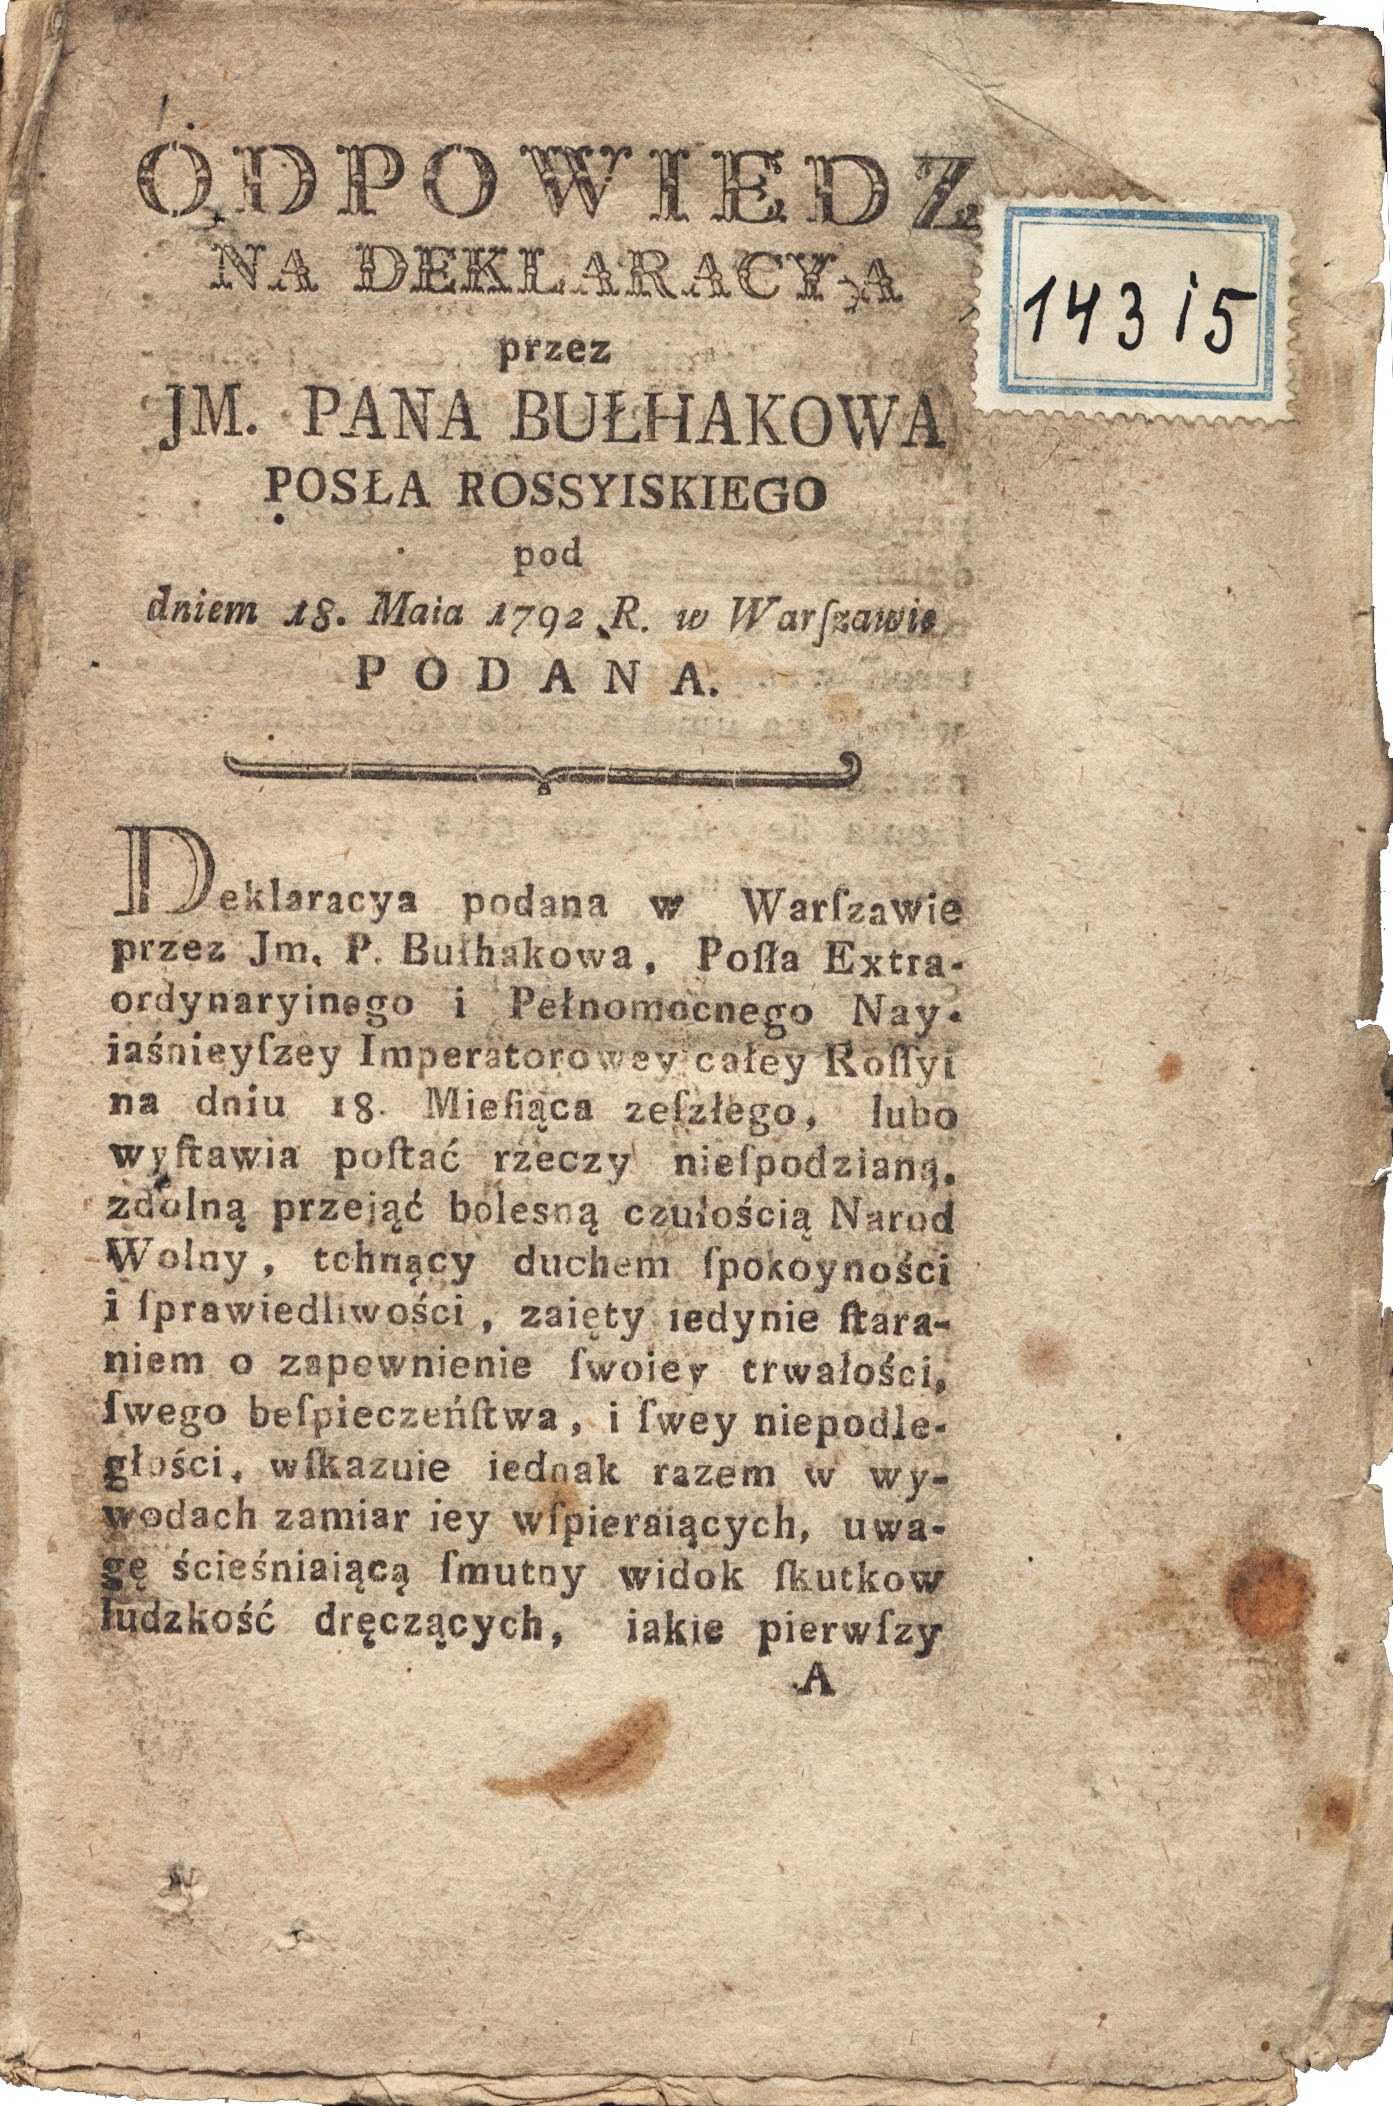 ODPOWIEDZ
NA DEKLARACYĄ
przez
JM. PANA BUŁHAKOWA
POSŁA ROSSYISKIEGO
pod
dniem 18. Maia 1792 R. w Warſzawie
PODANA.
14315
Deklaracya podana w Warſzawie
przez Jm. P. Bułhakowa, Poſła Extra-
ordynaryinego i Pełnomocnego Nay-
iaśnieyſzey Imperatorowey całey Roſſyi
na dniu 18. Mieſiąca zeſzłego, lubo
wyſtawia poſtać rzeczy nieſpodzianą,
zdolną przejąć bolesną czułością Narod
Wolny, tchnący duchem ſpokoyności
i ſprawiedliwości, zaięty iedynie ſtara-
niem o zapewnienie ſwoiey trwałości,
ſwego beſpieczeńſtwa, i ſwey niepodle-
głości, wſkazuie iednak razem w wy-
wodach zamiar iey wſpieraiących, uwa-
gę ścieśniaiącą ſmutny widok ſkutkow
ludzkość dręczących, iakie pierwſzy
A